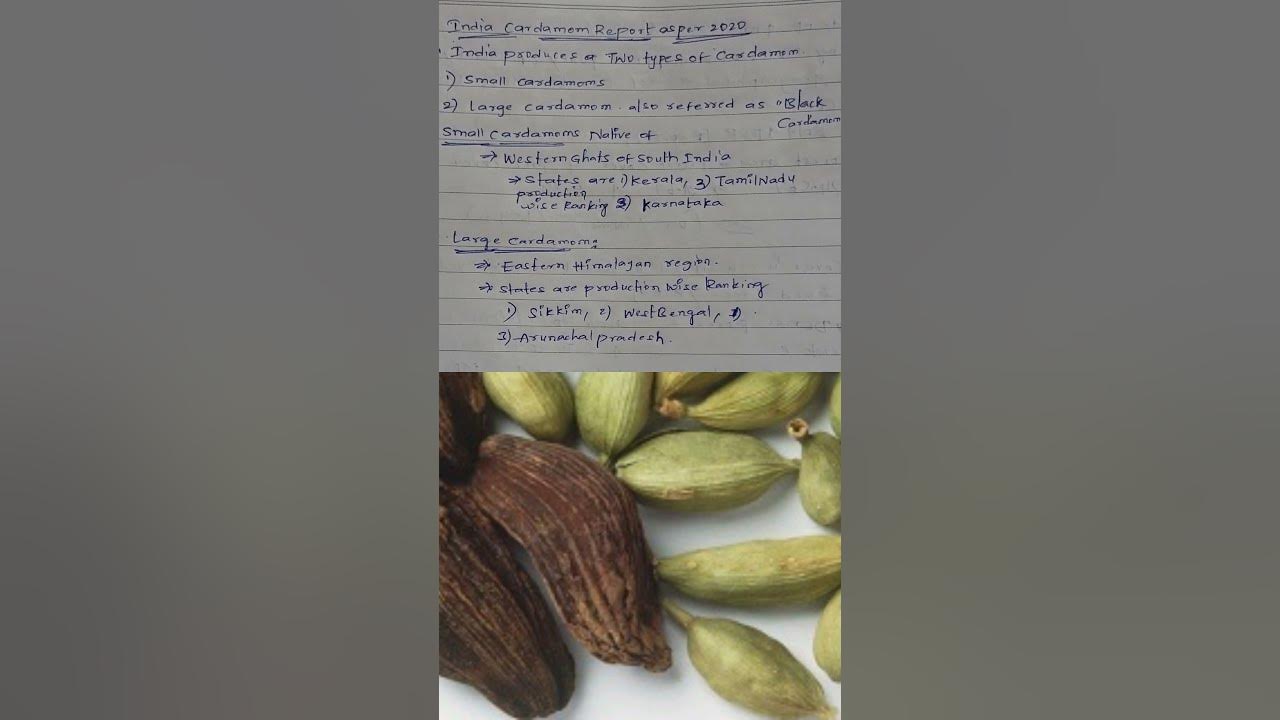 India Cardamom Report as per 2020
India produces a Two types of Cardamom
1) Small cardamoms
2) Large cardamom. also referred as "Black
Cardamom
Small Cardamoms Native of
→ Western Ghats of South India
⇒ States are 1) Kerala, 3) TamilNadu
production
wise Ranking 2) Karnataka
Large Cardamom:
⇒ Eastern Himalayan region.
⇒ States are production wise Ranking
1) Sikkim, 2) West Bengal,
3) Arunachal pradesh.